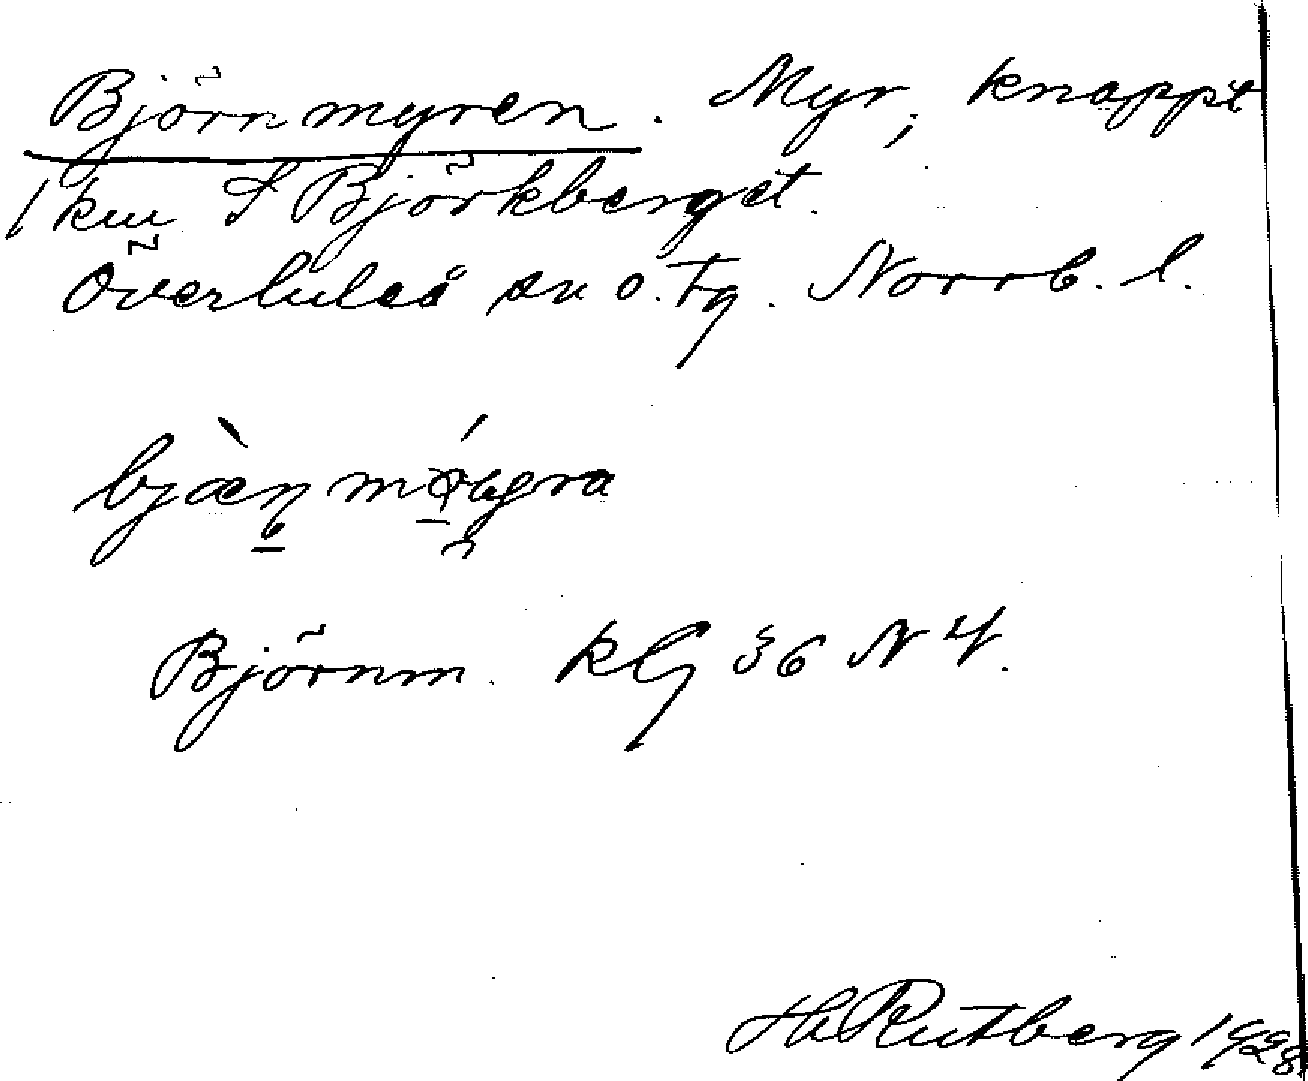 Björnmyren. Myr, knappt
1 km S Björkberget.
Överluleå sn o. tg. Norrb. l.
Björnm. kbl 36 N V.
Hb Rutberg 1928